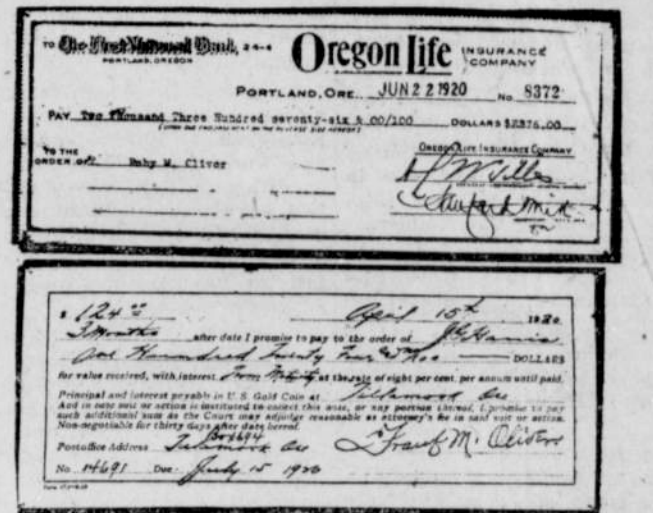 TO The First National Bank, 24-4
PORTLAND, OREGON
Oregon Life INSURANCE COMPANY
PORTLAND, ORE. JUN 22 1920 No 8372
PAY Two Thousand Three Hundred seventy-six & 00/100 DOLLARS $2376.00
TO THE
ORDER OF Ruby M. Oliver
OREGON LIFE INSURANCE COMPANY
$ 124 00 April 15th 1920
3 Months after date I promise to pay to the order of J G Harris
One Hundred Twenty Four DOLLARS
for value received, with interest From Maturity at the rate of eight per cent. per annum until paid.
Principal and interest payable in U. S. Gold Coin at Tillamook Ore
And in case suit or action is instituted to collect this note, or any portion thereof, I promise to pay
such additional sum as the Court may adjudge reasonable as attorney's fee in said suit or action.
Non-negotiable for thirty days after date hereof.
Box 694
Postoffice Address Tillamook Ore Frank M. Oliver
No. 14691 Due July 15 1920